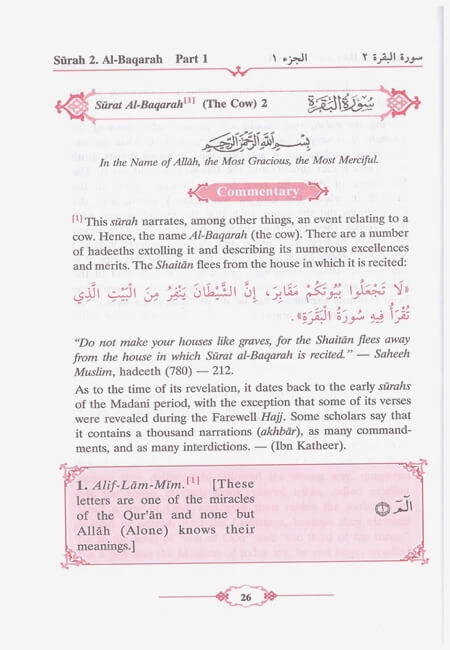 Sūrah 2. Al-Baqarah Part 1 الجزء ١ سورة البقرة ٢
Sūrat Al-Baqarah[1] (The Cow) 2 سُورَةُ الْبَقَرَةِ
بِسْمِ اللَّهِ الرَّحْمَٰنِ الرَّحِيمِ
In the Name of Allâh, the Most Gracious, the Most Merciful.
Commentary
[1] This sūrah narrates, among other things, an event relating to a
cow. Hence, the name Al-Baqarah (the cow). There are a number
of hadeeths extolling it and describing its numerous excellences
and merits. The Shaitân flees from the house in which it is recited:
«لَا تَجْعَلُوا بُيُوتَكُمْ مَقَابِرَ، إِنَّ الشَّيْطَانَ يَنْفِرُ مِنَ الْبَيْتِ الَّذِي
تُقْرَأُ فِيهِ سُورَةُ الْبَقَرَةِ».
"Do not make your houses like graves, for the Shaitân flees away
from the house in which Sūrat al-Baqarah is recited." — Saheeh
Muslim, hadeeth (780) — 212.
As to the time of its revelation, it dates back to the early sūrahs
of the Madani period, with the exception that some of its verses
were revealed during the Farewell Hajj. Some scholars say that
it contains a thousand narrations (akhbâr), as many command-
ments, and as many interdictions. — (Ibn Katheer).
1. Alif-Lâm-Mîm.[1] [These
letters are one of the miracles
of the Qur'ân and none but
Allâh (Alone) knows their
meanings.]
الٓمٓ ١
26